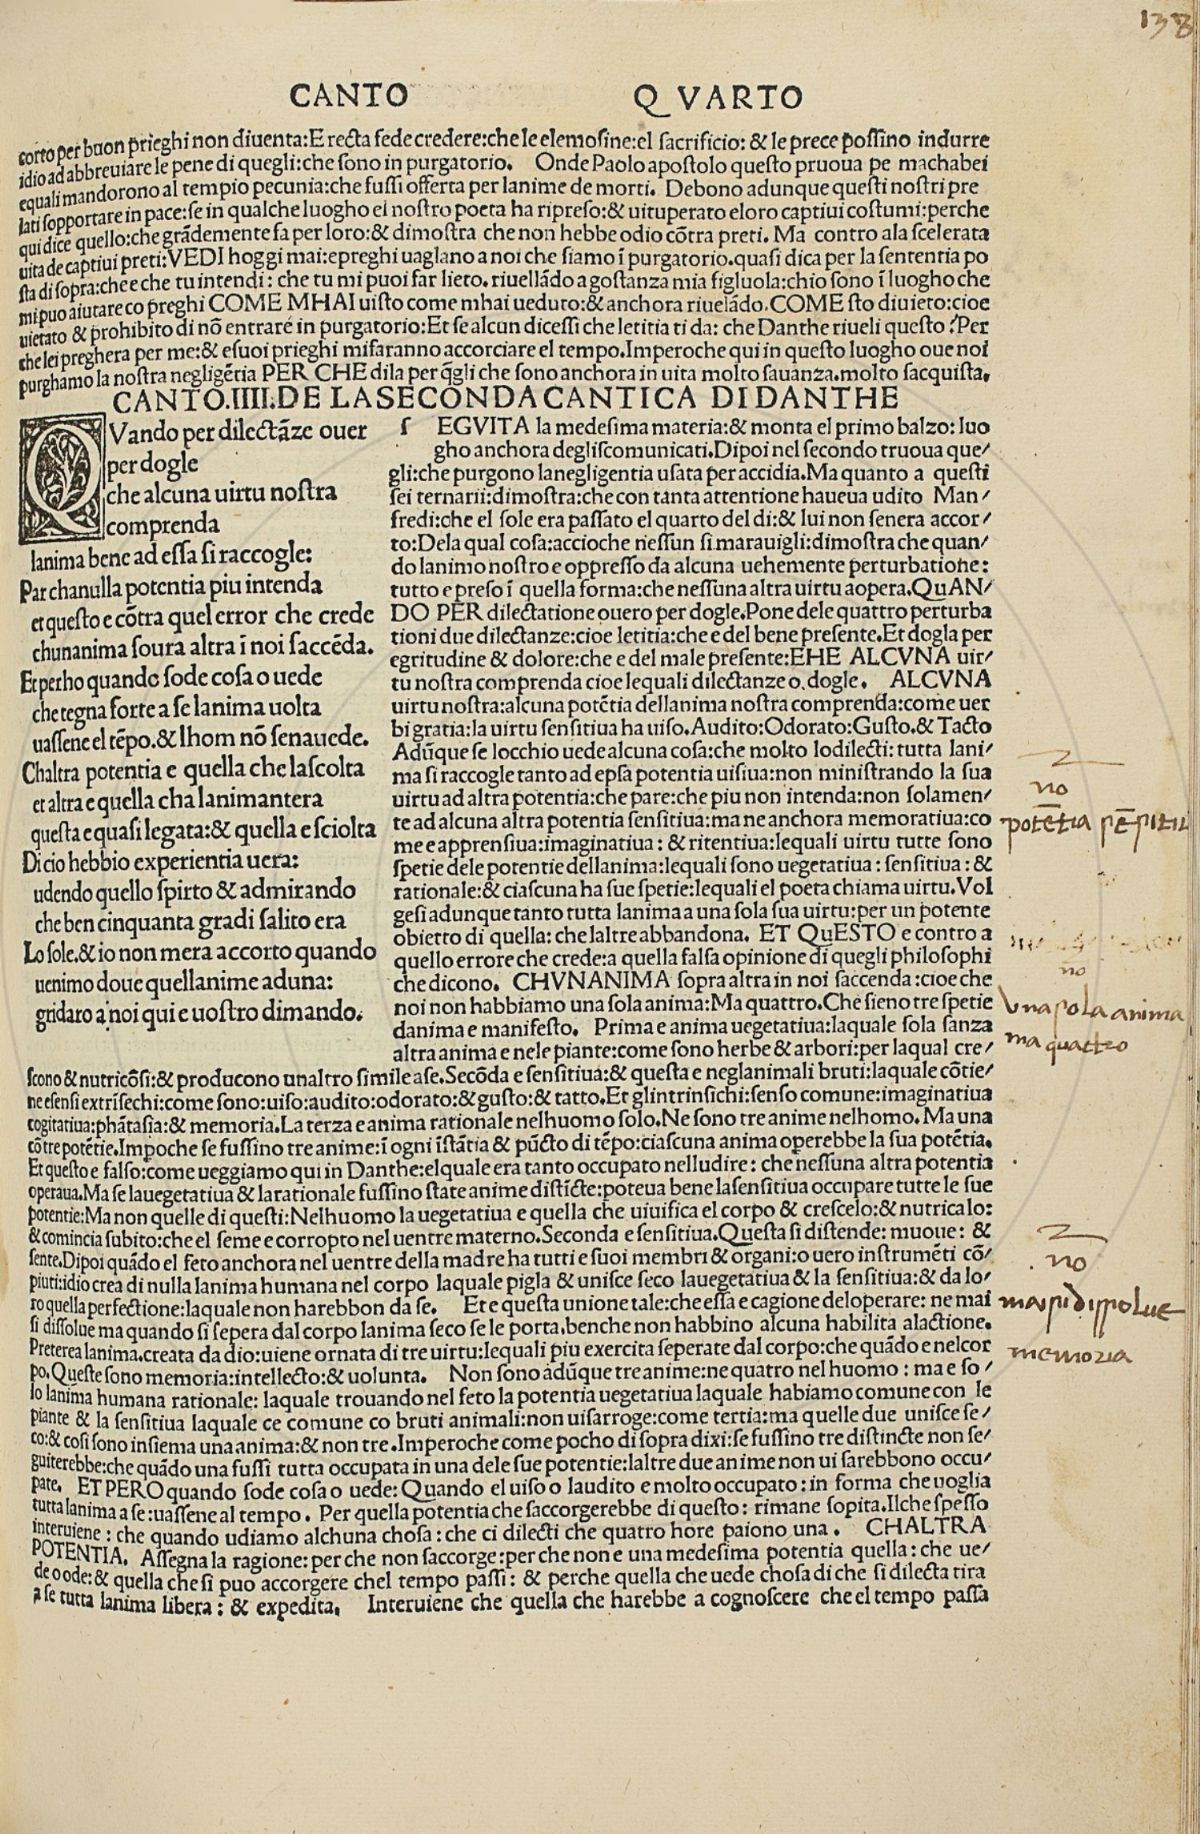 138
CANTO Q VARTO
corto per buon prieghi non diuenta:E recta fede credere:che le elemosine:el sacrificio: & le prece possino indurre
idio ad abbreuiare le pene di quegli:che sono in purgatorio. Onde Paolo apostolo questo pruoua pe machabei
equali mandorono al tempio pecunia:che fussi offerta per lanime de morti. Debono adunque questi nostri pre
lati sopportare in pace:se in qualche luogho el nostro poeta ha ripreso:& uituperato eloro captiui costumi:perche
qui dice quello:che grãdemente fa per loro:& dimostra che non hebbe odio cõtra preti. Ma contro ala scelerata
uita de captiui preti:VEDI hoggi mai:epreghi uaglano a noi che siamo ĩ purgatorio.quasi dica per la sententia po
sta di sopra:che e che tu intendi: che tu mi puoi far lieto. riuellãdo a gostanza mia figluola:chio sono ĩ luogho che
mi puo aiutare co preghi COME MHAI uisto come mhai ueduto:& anchora riuelãdo.COME sto diuieto:cioe
uietato & prohibito di nõ entrare in purgatorio:Et se alcun dicessi che letitia ti da: che Danthe riueli questo?Per
che lei preghera per me:& esuoi prieghi mifaranno accorciare el tempo.Imperoche qui in questo luogho oue noi
purghamo la nostra negligẽtia PER CHE dila per q̃gli che sono anchora in uita molto sauanza.molto sacquista.
CANTO.IIII.DE LASECONDACANTICA DIDANTHE
QVando per dilectãze ouer
per dogle
che alcuna uirtu nostra
comprenda
lanima bene ad essa si raccogle:
Par chanulla potentia piu intenda
et questo e cõtra quel error che crede
chunanima soura altra ĩ noi saccẽda.
Et perho quando sode cosa o uede
che tegna forte a se lanima uolta
uassene el tẽpo.& lhom nõ senauede.
Chaltra potentia e quella che lascolta
et altra e quella cha lanimantera
questa e quasi legata:& quella e sciolta
Di cio hebbio experientia uera:
udendo quello spirto & admirando
che ben cinquanta gradi salito era
Lo sole.& io non mera accorto quando
uenimo doue quellanime aduna:
gridaro a noi qui e uostro dimando.
s EGVITA la medesima materia:& monta el primo balzo: luo
gho anchora degliscomunicati.Dipoi nel secondo truoua que/
gli:che purgono lanegligentia usata per accidia.Ma quanto a questi
sei ternarii:dimostra:che con tanta attentione haueua udito Man/
fredi:che el sole era passato el quarto del di:& lui non senera accor/
to:Dela qual cosa:accioche nessun si marauigli:dimostra che quan/
do lanimo nostro e oppresso da alcuna uehemente perturbatione:
tutto e preso ĩ quella forma:che nessuna altra uirtu aopera.QuAN/
DO PER dilectatione ouero per dogle.Pone dele quattro perturba
tioni due dilectanze:cioe letitia:che e del bene presente.Et dogla per
egritudine & dolore:che e del male presente:EHE ALCVNA uir/
tu nostra comprenda cioe lequali dilectanze o. dogle. ALCVNA
uirtu nostra:alcuna potẽtia dellanima nostra comprenda:come uer
bi gratia:la uirtu sensitiua ha uiso.Audito:Odorato:Gusto.& Tacto
Adũque se locchio uede alcuna cosa:che molto lodilecti: tutta lani/
ma si raccogle tanto ad epsa potentia uisiua:non ministrando la sua
uirtu ad altra potentia:che pare:che piu non intenda:non solamen/
te ad alcuna altra potentia sensitiua:ma ne anchora memoratiua:co
me e apprensiua:imaginatiua: & ritentiua:lequali uirtu tutte sono
spetie dele potentie dellanima:lequali sono uegetatiua: sensitiua: &
rationale:& ciascuna ha sue spetie:lequali el poeta chiama uirtu.Vol
gesi adunque tanto tutta lanima a una sola sua uirtu:per un potente
obietto di quella: che laltre abbandona. ET QuESTO e contro a
quello errore che crede:a quella falsa opinione di quegli philosophi
che dicono. CHVNANIMA sopra altra in noi saccenda:cioe che
noi non habbiamo una sola anima:Ma quattro.Che sieno tre spetie
danima e manifesto. Prima e anima uegetatiua:laquale sola sanza
altra anima e nele piante:come sono herbe & arbori:per laqual cre/
scono & nutricõsi:& producono unaltro simile ase.Secõda e sensitiua:& questa e neglanimali bruti:laquale cõtie/
ne esensi extrĩsechi:come sono:uiso:audito:odorato:& gusto:& tatto.Et glintrinsichi:senso comune:imaginatiua
cogitatiua:phãtasia:& memoria.La terza e anima rationale nelhuomo solo.Ne sono tre anime nelhomo. Ma una
cõ tre potẽtie.Impoche se fussino tre anime:ĩ ogni ĩstãtia & pũcto di tẽpo:ciascuna anima operebbe la sua potẽtia.
Et questo e falso:come ueggiamo qui in Danthe:elquale era tanto occupato nelludire: che nessuna altra potentia
operaua.Ma se lauegetatiua & larationale fussino state anime distĩcte:poteua bene lasensitiua occupare tutte le sue
potentie:Ma non quelle di questi:Nelhuomo la uegetatiua e quella che uiuifica el corpo & crescelo:& nutrica lo:
& comincia subito:che el seme e corropto nel uentre materno.Seconda e sensitiua.Questa si distende: muoue: &
sente.Dipoi quãdo el feto anchora nel uentre della madre ha tutti e suoi membri & organi:o uero instrumẽti cõ/
piuti:idio crea di nulla lanima humana nel corpo laquale pigla & unisce seco lauegetatiua & la sensitiua:& da lo/
ro quella perfectione:laquale non harebbon da se. Et e questa unione tale:che essa e cagione deloperare: ne mai
si dissolue ma quando si sepera dal corpo lanima seco se le porta.benche non habbino alcuna habilita alactione.
Preterea lanima.creata da dio:uiene ornata di tre uirtu:lequali piu exercita seperate dal corpo:che quãdo e nelcor
po.Queste sono memoria:intellecto:& uolunta. Non sono adũque tre anime:ne quatro nel huomo: ma e so/
lo lanima humana rationale: laquale trouando nel feto la potentia uegetatiua laquale habiamo comune con le
piante & la sensitiua laquale ce comune co bruti animali:non uisarroge:come tertia:ma quelle due unisce se/
co:& cosi sono insiema una anima:& non tre.Imperoche come pocho di sopra dixi:se fussino tre distincte non se/
guiterebbe:che quãdo una fussi tutta occupata in una dele sue potentie:laltre due anime non ui sarebbono occu/
pate. ET PERO quando sode cosa o uede: Quando el uiso o laudito e molto occupato: in forma che uoglia
tutta lanima a se:uassene al tempo. Per quella potentia che saccorgerebbe di questo: rimane sopita.Ilche spesso
interuiene: che quando udiamo alchuna chosa: che ci dilecti che quatro hore paiono una. CHALTRA
POTENTIA. Assegna la ragione: per che non saccorge:per che non e una medesima potentia quella: che ue/
de o ode: & quella che si puo accorgere chel tempo passi: & perche quella che uede chosa di che si dilecta tira
a se tutta lanima libera: & expedita. Interuiene che quella che harebbe a cognoscere che el tempo passa
no
potẽtia
no
Una sola anima
ma quattro
no
mai si dissolue
memoria